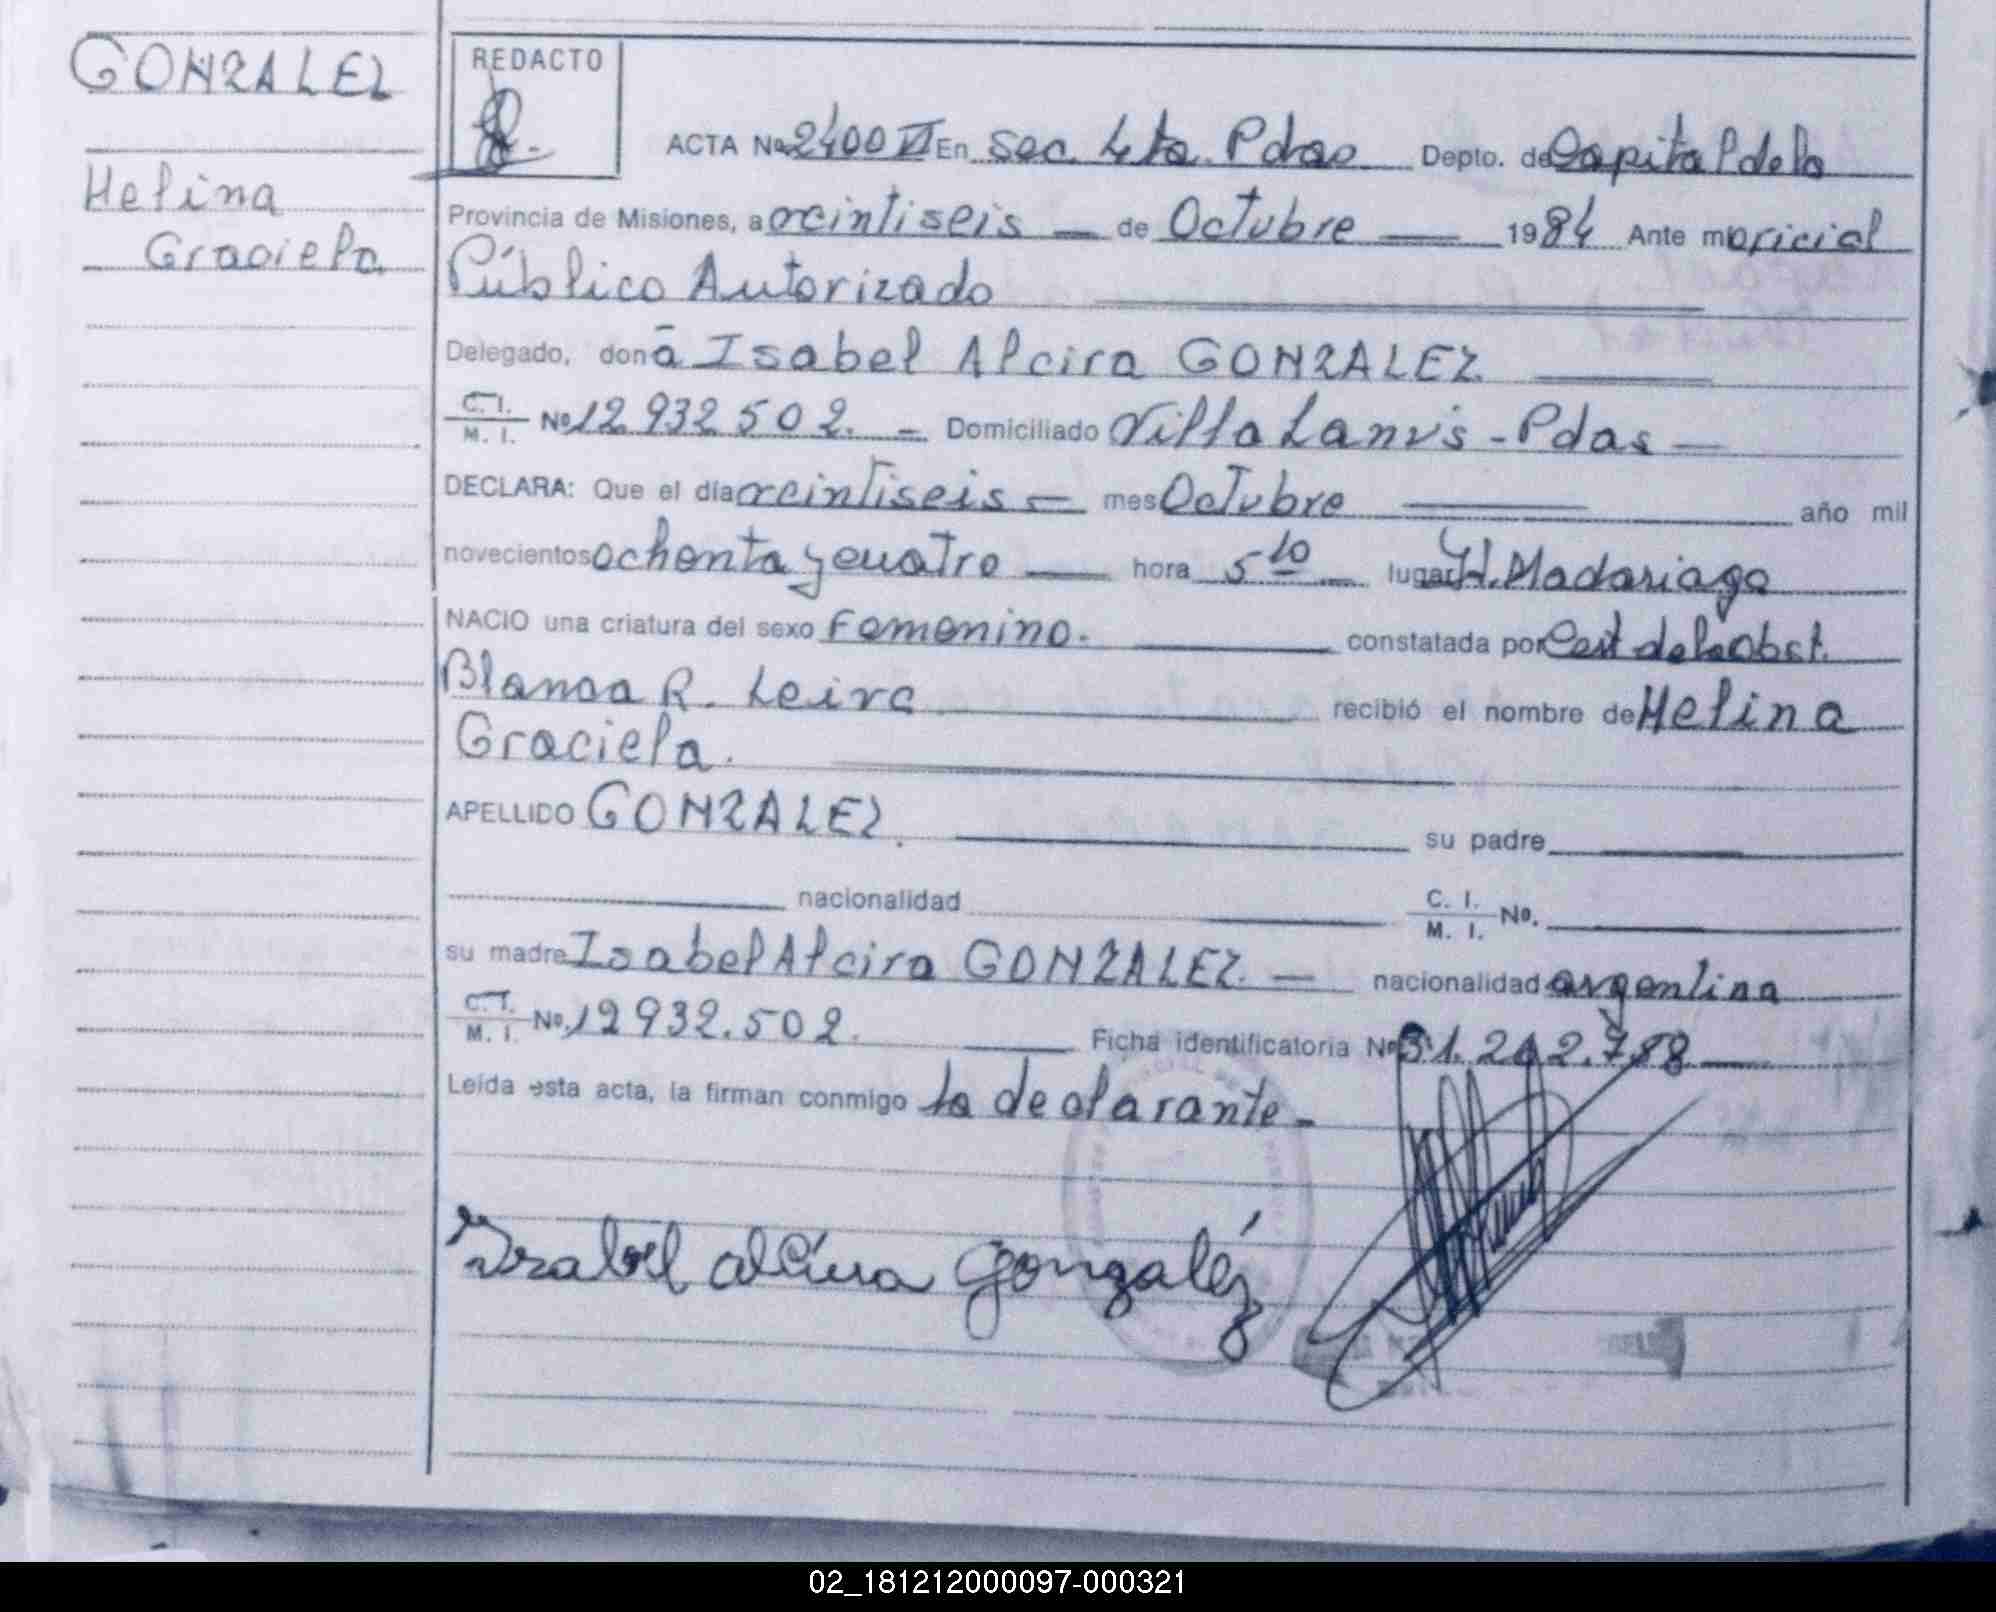 GONZALEZ
Helina
Graciela
REDACTO
ACTA No 2400 VI En Sec. 4ta Pdas Depto. de Capital de la
Provincia de Misiones, a veintiseis — de Octubre — 1984 Ante mi oficial
Público Autorizado
Delegado, doña Isabel Alcira GONZALEZ
C. I. / M. I. No 12.932.502. - Domiciliado Villa Lanús - Pdas —
DECLARA: Que el día veintiseis — mes Octubre año mil
novecientos ochenta y cuatro — hora 5 10 lugar H. Madariaga
NACIO una criatura del sexo femenino. constatada por Cert de la obst.
Blanca R. Leiva recibió el nombre de Helina
Graciela.
APELLIDO GONZALEZ. su padre
nacionalidad C. I. / M. I. No.
su madre Isabel Alcira GONZALEZ. — nacionalidad argentina
C. I. / M. I. No. 12932.502. Ficha identificatoria No 31.242.788
Leída esta acta, la firman conmigo la declarante -
Isabel alcira gonzaléz
02_181212000097-000321